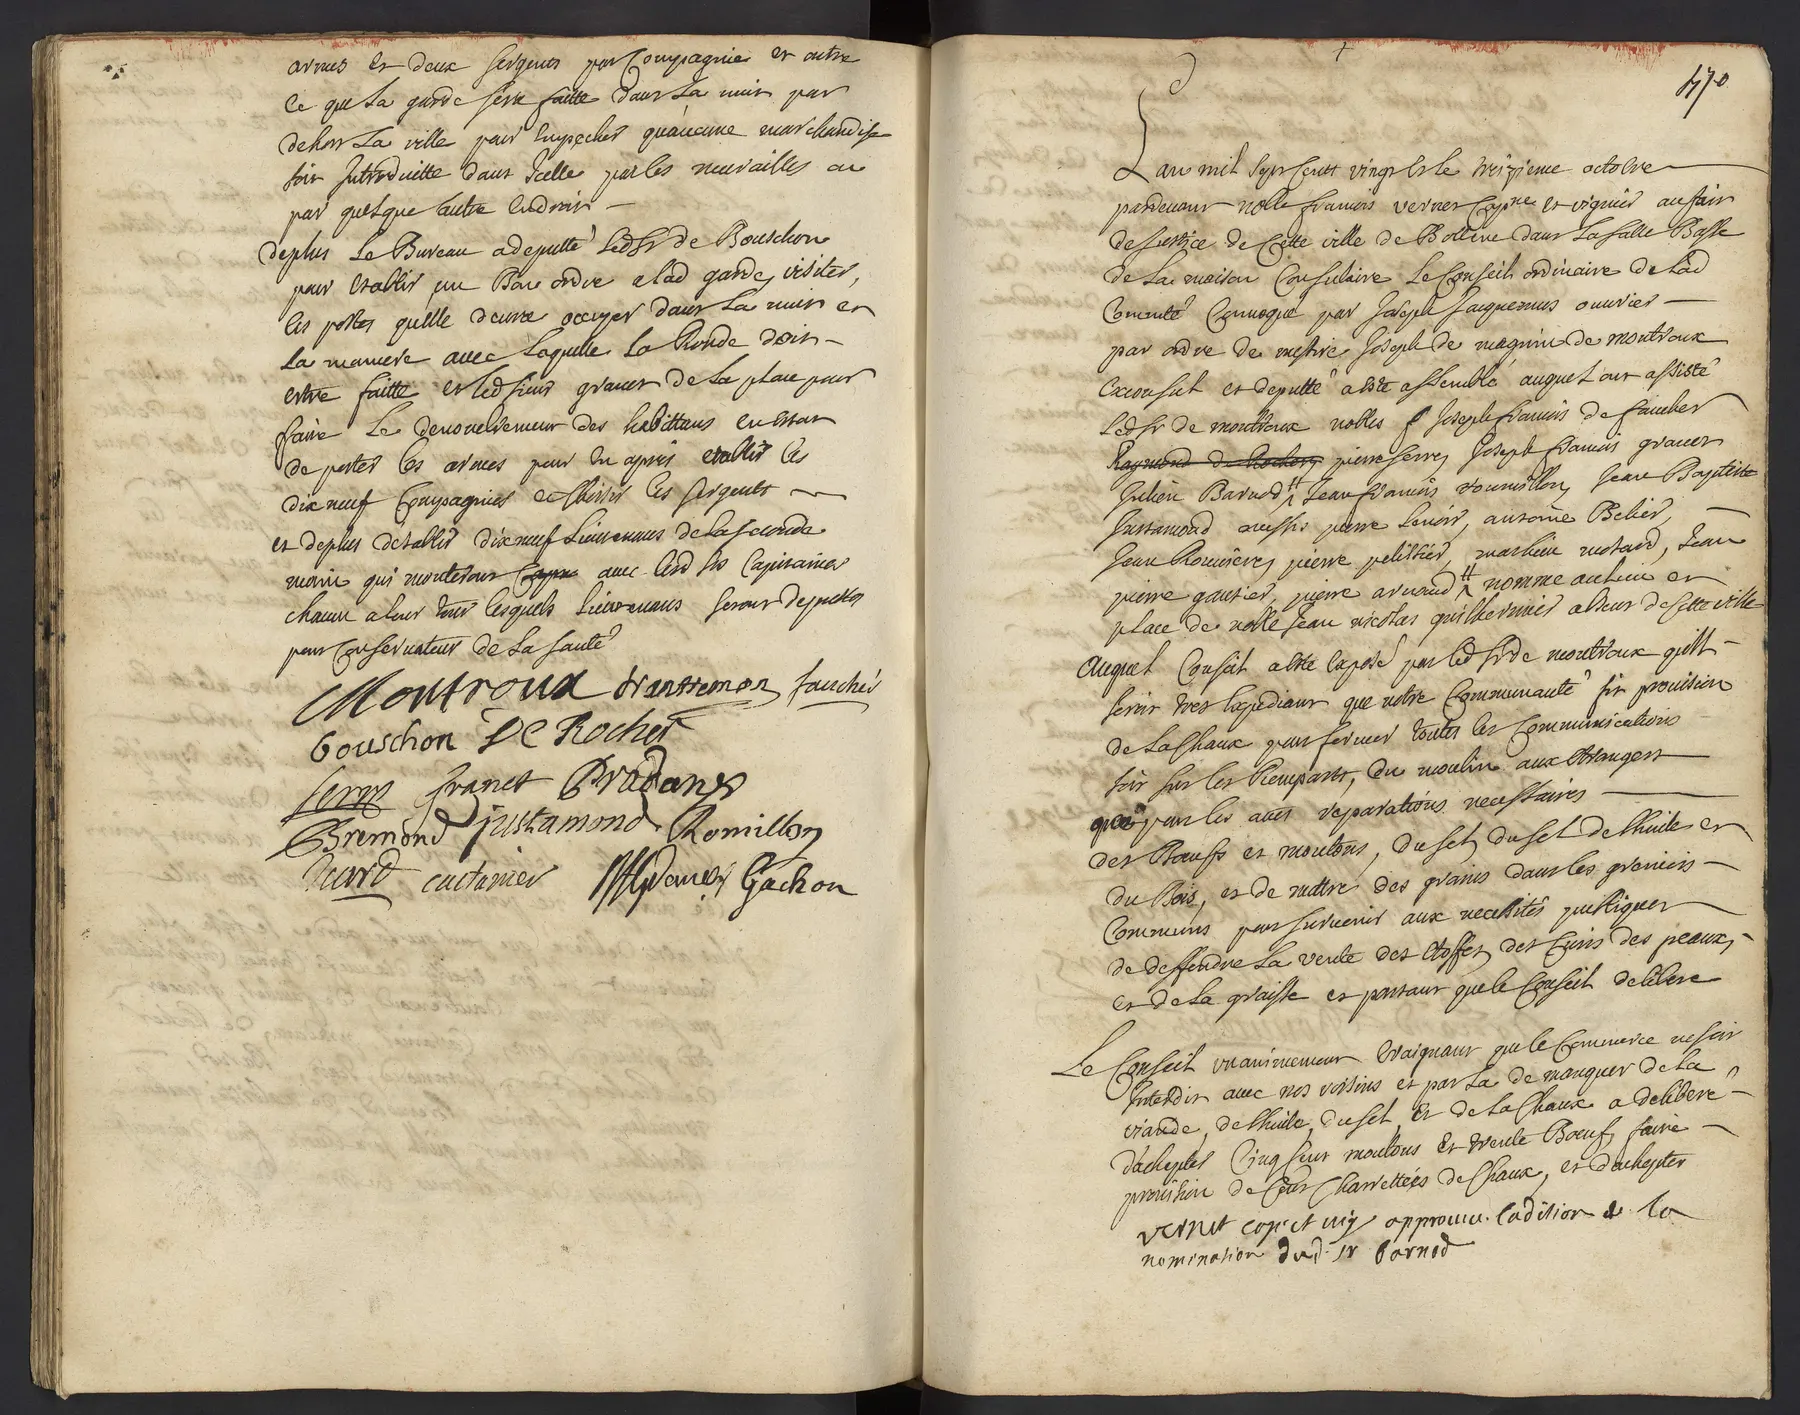 armes et deux sergents par Compagnie et outre
ce que La garde sera faitte dans La nuit par
dehors La ville pour empecher quaucune marchandise
soit Introduitte dans Icelle par les murailles ou
par quelque autre endroit —
deplus Le Bureau a deputté ledt Sr de Bouschon
pour etablir un Bon ordre a lad garde, visiter,
les postes quelle devra occuper dans La nuit et
La maniere avec Laquelle La Ronde doit —
estre faitte et led sieur granet de La place pour
faire Le denombrement des habittans en estat
de porter les armes pour en apres etablir les
dix neuf Compagnies et choisir les sergents —
et deplus detablir dix neuf Lieutenans de La seconde
main qui monteront avec lesd Srs Capitaines
chacun a leur tour lesquels Lieutenans seront deputtés
pour Conservateurs de La santé
Montroux dantremon fauchér
bouschon DE Rocher
serres granet Bradanes
Bremond justamond Romillon
ricard castanier Gachon
470
Lan mil sept Cents vingt et le treizieme octobre —
pardevant noble francois vernet Capne et viguier au fait
de Justice de Cette ville de Bollene dans La salle Basse
de La maison Consulaire Le Conseil ordinaire de Lad
Comunté Convoqué par Joseph Jacquemus ouvrier —
par ordre de messire Joseph de magnin de montroux
Exconsul et deputté a esté assemblé auquel ont assisté
Ledt Sr de montroux nobles Joseph francois de faucher
Raymond de Rocher pierre serres Joseph francois granet
Julien Barnod # Jean francois roumillon, Jean Baptiste
Justamond messrs pierre Lenoir, antoine Belier, —
Jean Roumiere, pierre pelissier, mathieu motard, Jean
pierre gautier, pierre arnaud # nommé au lieu et
place de noble Jean nicolas guilhermier absent de cette ville
Auquel Conseil a esté Exposé par led Sr de montroux quil —
seroit tres Expediant que notre Communauté fit provision
de La Chaux pour fermer toutes les Communications
soit sur les Remparts, du moulin aux Etrangers —
que pour les autres reparations necessaires —
des Bœufs et moutons, du sel, de Lhuile et
du Bois, et de mettre des grains dans les greniers —
Communs pour survenir aux necessités publiques —
de deffendre La vente des Etoffes, des Cuirs des peaux, —
et de La graisse et partant que le Conseil delibere
Le Conseil unanimement Craignant que le Commerce ne soit
Interdit avec nos voisins et par La de manquer de La
viande, de Lhuile, du sel, et de La Chaux a deliberé —
dachepter Cinq Cent moutons et trente Bœufs, faire —
provision de Cent Charrettées de Chaux, et dachepter
vernet cap. et vig approuve ladition de la
nomination dud. sr barnod